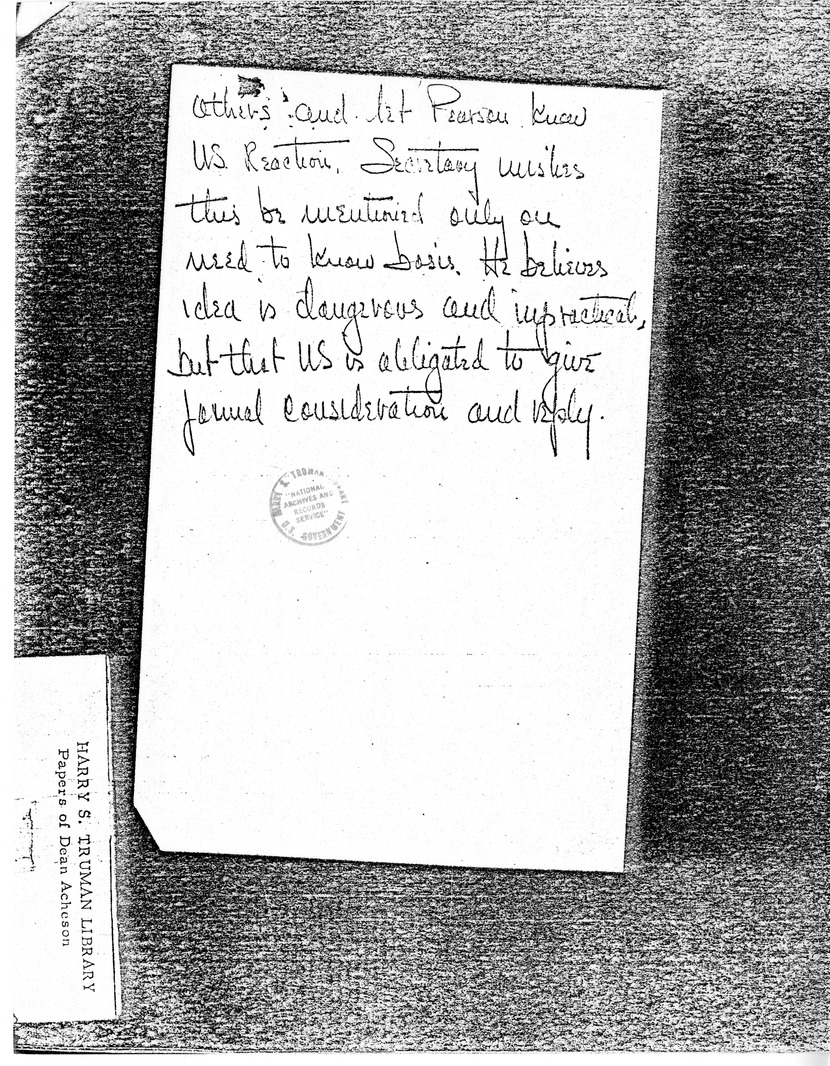 others and let Pearson know
US Reaction. Secretary wishes
this be mentioned only on
need to know basis. He believes
idea is dangerous and impractical,
but that US is obligated to give
formal consideration and reply.
HARRY S. TRUMAN LIBRARY
"NATIONAL
ARCHIVES AND
RECORDS
SERVICE"
U.S. GOVERNMENT
HARRY S. TRUMAN LIBRARY
Papers of Dean Acheson